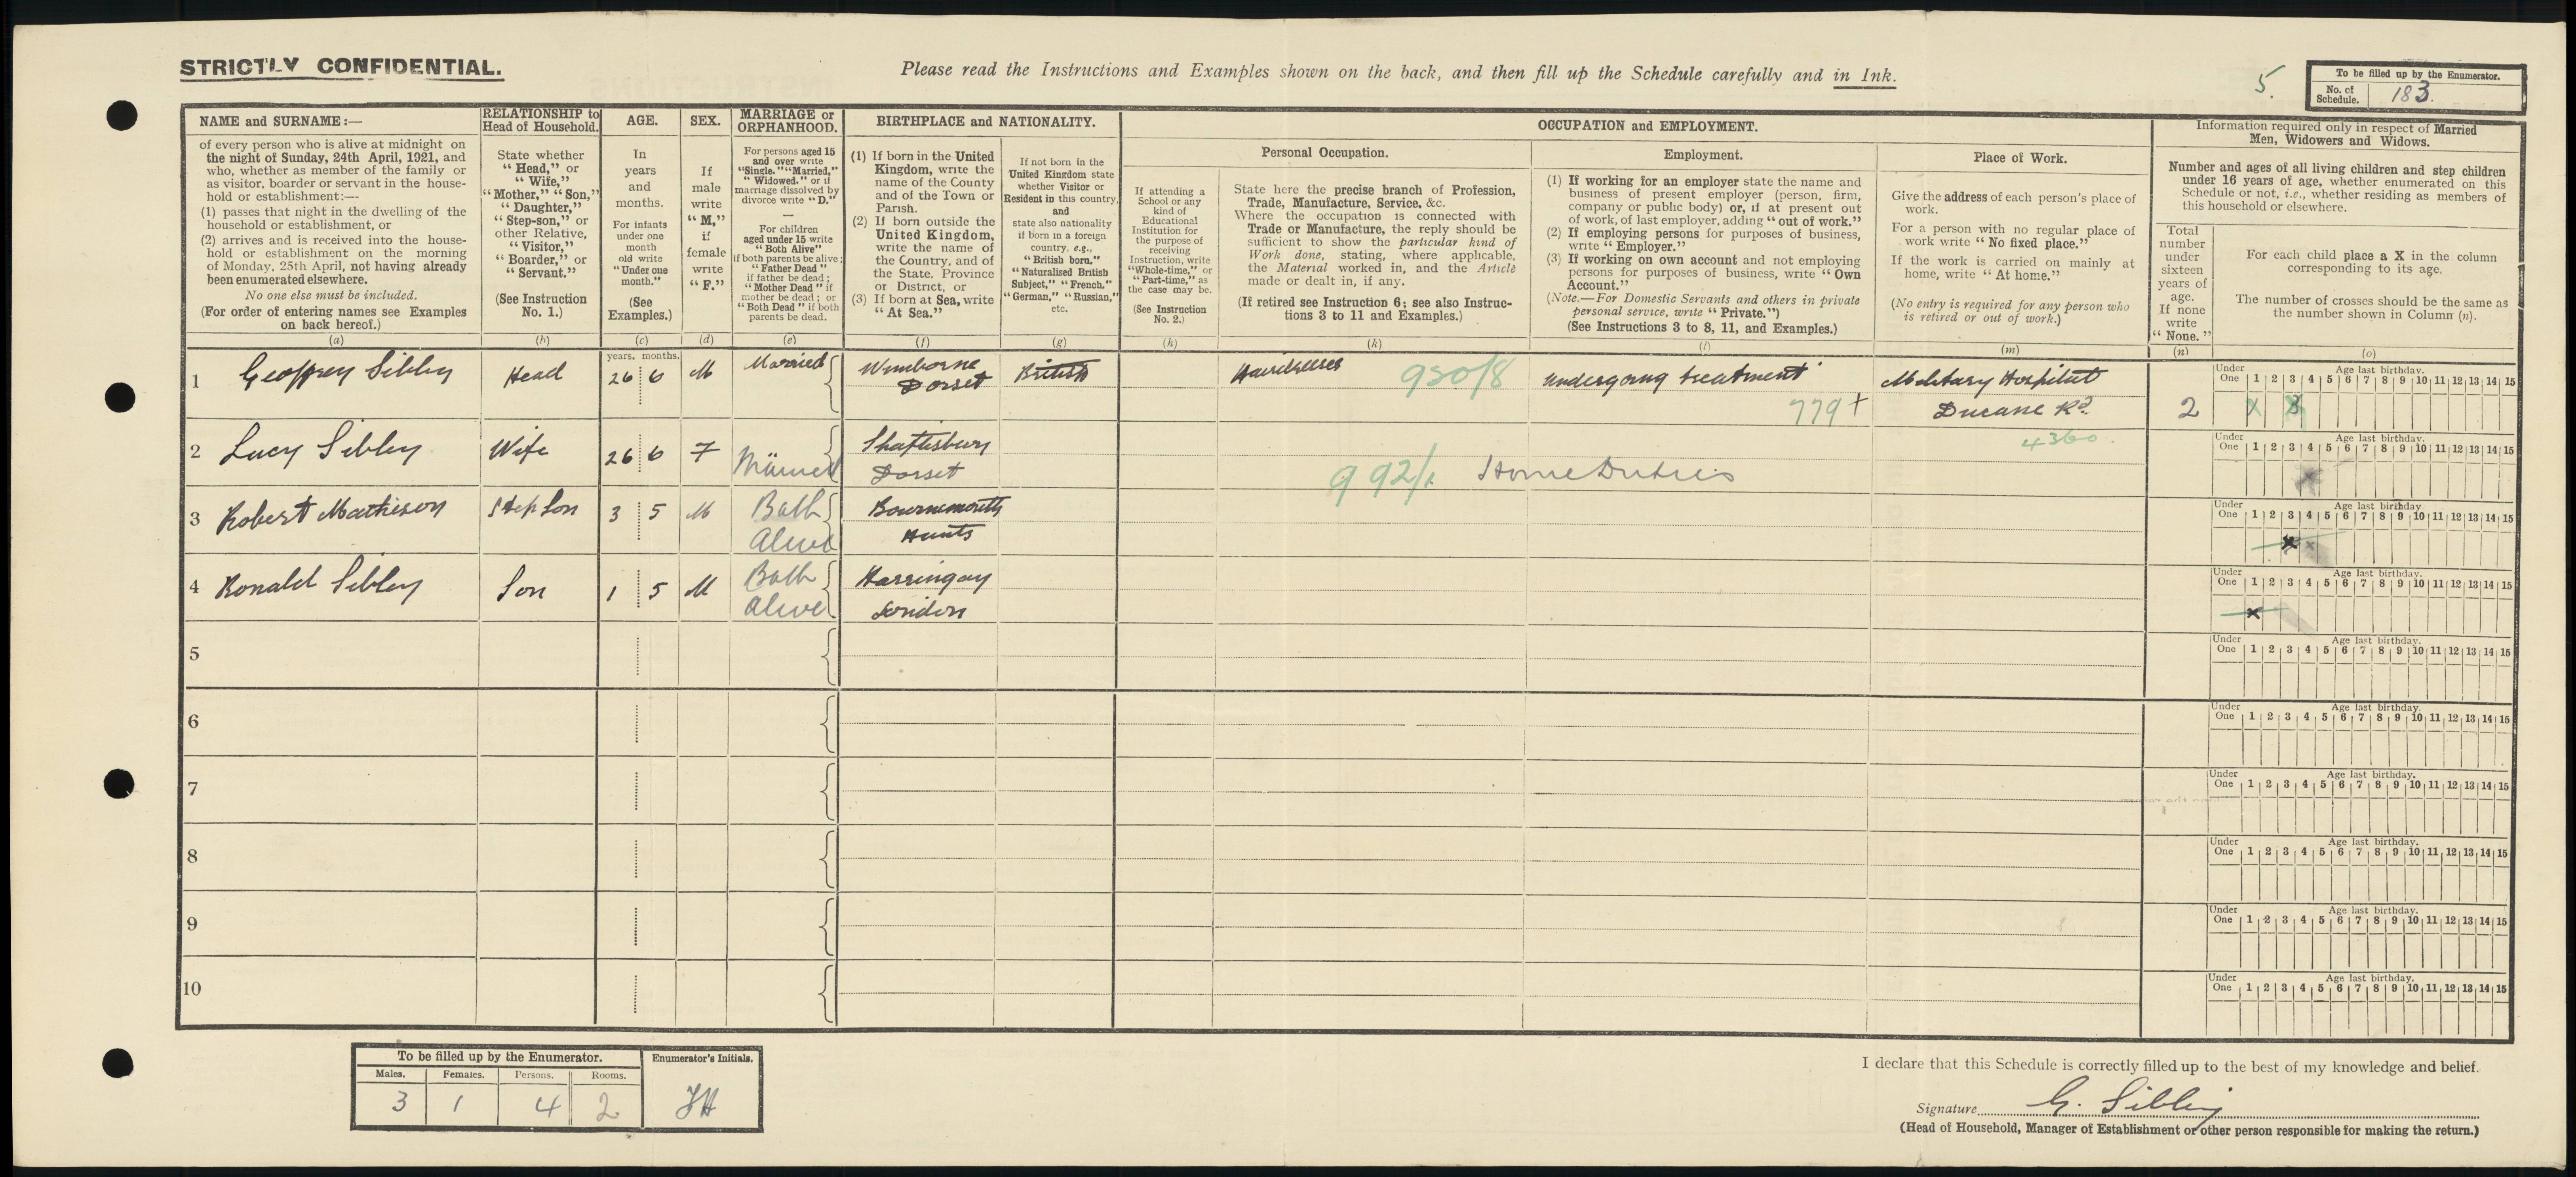 STRICTLY CONFIDENTIAL.
Please read the Instructions and Examples shown on the back, and then fill up the Schedule carefully and in Ink.
5.
To be filled up by the Enumerator.
No. of Schedule. 183.
NAME and SURNAME :—
of every person who is alive at midnight on
the night of Sunday, 24th April, 1921, and
who, whether as member of the family or
as visitor, boarder or servant in the house-
hold or establishment:—
(1) passes that night in the dwelling of the
household or establishment, or
(2) arrives and is received into the house-
hold or establishment on the morning
of Monday, 25th April, not having already
been enumerated elsewhere.
No one else must be included.
(For order of entering names see Examples
on back hereof.)
(a)
RELATIONSHIP to
Head of Household.
State whether
"Head," or
"Wife,"
"Mother," "Son,"
"Daughter,"
"Step-son," or
other Relative,
"Visitor,"
"Boarder," or
"Servant."
(See Instruction
No. 1.)
(b)
AGE.
In
years
and
months.
For infants
under one
month
old write
"Under one
month."
(See
Examples.)
(c)
SEX.
If
male
write
"M,"
if
female
write
"F."
(d)
MARRIAGE or
ORPHANHOOD.
For persons aged 15
and over write
"Single," "Married,"
"Widowed," or if
marriage dissolved by
divorce write "D."
—
For children
aged under 15 write
"Both Alive"
if both parents be alive;
"Father Dead"
if father be dead;
"Mother Dead" if
mother be dead; or
"Both Dead" if both
parents be dead.
(e)
BIRTHPLACE and NATIONALITY.
(1) If born in the United
Kingdom, write the
name of the County
and of the Town or
Parish.
(2) If born outside the
United Kingdom,
write the name of
the Country, and of
the State, Province
or District, or
(3) If born at Sea, write
"At Sea."
(f)
If not born in the
United Kingdom state
whether Visitor or
Resident in this country,
and
state also nationality
if born in a foreign
country, e.g.,
"British born,"
"Naturalised British
Subject," "French,"
"German," "Russian,"
etc.
(g)
OCCUPATION and EMPLOYMENT.
If attending a
School or any
kind of
Educational
Institution for
the purpose of
receiving
Instruction, write
"Whole-time," or
"Part-time," as
the case may be.
(See Instruction
No. 2.)
(h)
Personal Occupation.
State here the precise branch of Profession,
Trade, Manufacture, Service, &c.
Where the occupation is connected with
Trade or Manufacture, the reply should be
sufficient to show the particular kind of
Work done, stating, where applicable,
the Material worked in, and the Article
made or dealt in, if any.
(If retired see Instruction 6; see also Instruc-
tions 3 to 11 and Examples.)
(k)
Employment.
(1) If working for an employer state the name and
business of present employer (person, firm,
company or public body) or, if at present out
of work, of last employer, adding "out of work."
(2) If employing persons for purposes of business,
write "Employer."
(3) If working on own account and not employing
persons for purposes of business, write "Own
Account."
(Note.—For Domestic Servants and others in private
personal service, write "Private.")
(See Instructions 3 to 8, 11, and Examples.)
(l)
Place of Work.
Give the address of each person's place of
work.
For a person with no regular place of
work write "No fixed place."
If the work is carried on mainly at
home, write "At home."
(No entry is required for any person who
is retired or out of work.)
(m)
Information required only in respect of Married
Men, Widowers and Widows.
Number and ages of all living children and step children
under 16 years of age, whether enumerated on this
Schedule or not, i.e., whether residing as members of
this household or elsewhere.
Total
number
under
sixteen
years of
age.
If none
write
"None."
(n)
For each child place a X in the column
corresponding to its age.
The number of crosses should be the same as
the number shown in Column (n).
(o)
years. months.
1 Geoffrey Sibley Head 26 6 M Married Wimborne Dorset British Hairdresser 930/8 undergoing treatment 779+ Military Hospital Ducane Rd. 2
Under One 1 2 3 4 5 6 7 8 9 10 11 12 13 14 15
Age last birthday.
X
4360.
2 Lucy Sibley Wife 26 6 F Married Shaftesbury Dorset 992/1 Home Duties
Under One 1 2 3 4 5 6 7 8 9 10 11 12 13 14 15
Age last birthday.
x
3 Robert Mathieson Step Son 3 5 M Both Alive Bournemouth Hunts
Under One 1 2 3 4 5 6 7 8 9 10 11 12 13 14 15
Age last birthday
x x
4 Ronald Sibley Son 1 5 M Both Alive Harringay London
Under One 1 2 3 4 5 6 7 8 9 10 11 12 13 14 15
Age last birthday.
x
5
Under One 1 2 3 4 5 6 7 8 9 10 11 12 13 14 15
Age last birthday.
6
Under One 1 2 3 4 5 6 7 8 9 10 11 12 13 14 15
Age last birthday.
7
Under One 1 2 3 4 5 6 7 8 9 10 11 12 13 14 15
Age last birthday.
8
Under One 1 2 3 4 5 6 7 8 9 10 11 12 13 14 15
Age last birthday.
9
Under One 1 2 3 4 5 6 7 8 9 10 11 12 13 14 15
Age last birthday.
10
Under One 1 2 3 4 5 6 7 8 9 10 11 12 13 14 15
Age last birthday.
To be filled up by the Enumerator.
Males. Females. Persons. Rooms.
3 1 4 2
Enumerator's Initials.
JH
I declare that this Schedule is correctly filled up to the best of my knowledge and belief.
Signature G. Sibley
(Head of Household, Manager of Establishment or other person responsible for making the return.)